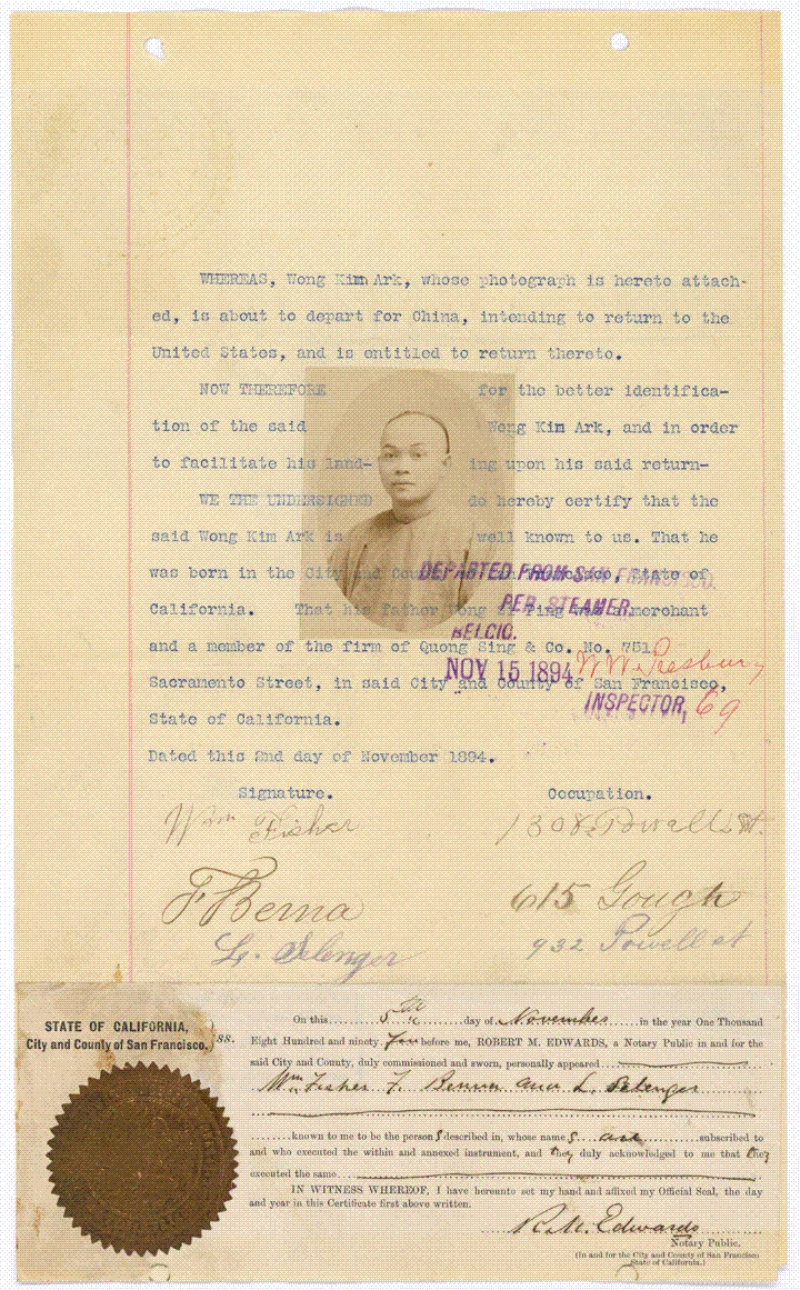 WHEREAS, Wong Kim Ark, whose photograph is hereto attach-
ed, is about to depart for China, intending to return to the
United States, and is entitled to return thereto.
NOW THEREFORE for the better identifica-
tion of the said Wong Kim Ark, and in order
to facilitate his land- ing upon his said return-
WE THE UNDERSIGNED do hereby certify that the
said Wong Kim Ark is well known to us. That he
was born in the City and County of San Francisco, State of
DEPARTED FROM SAN FRANCISCO.
California. That his father Wong Si Ping was a merchant
PER STEAMER.
BELGIC.
and a member of the firm of Quong Sing & Co. No. 751
NOV 15 1894
Sacramento Street, in said City and County of San Francisco,
INSPECTOR, 69
State of California.
Dated this 2nd day of November 1894.
Signature. Occupation.
Wm Fisher 1308 Powell St.
F Berna 615 Gough
L. Selenger 932 Powell st
STATE OF CALIFORNIA,
City and County of San Francisco. } ss.
On this 5th day of November in the year One Thousand
Eight Hundred and ninety Four before me, ROBERT M. EDWARDS, a Notary Public in and for the
said City and County, duly commissioned and sworn, personally appeared
Wm Fisher F. Benna and L. Selenger
known to me to be the persons described in, whose names are subscribed to
and who executed the within and annexed instrument, and they duly acknowledged to me that they
executed the same
IN WITNESS WHEREOF, I have hereunto set my hand and affixed my Official Seal, the day
and year in this Certificate first above written.
R. M. Edwards
Notary Public.
(In and for the City and County of San Francisco
State of California.)